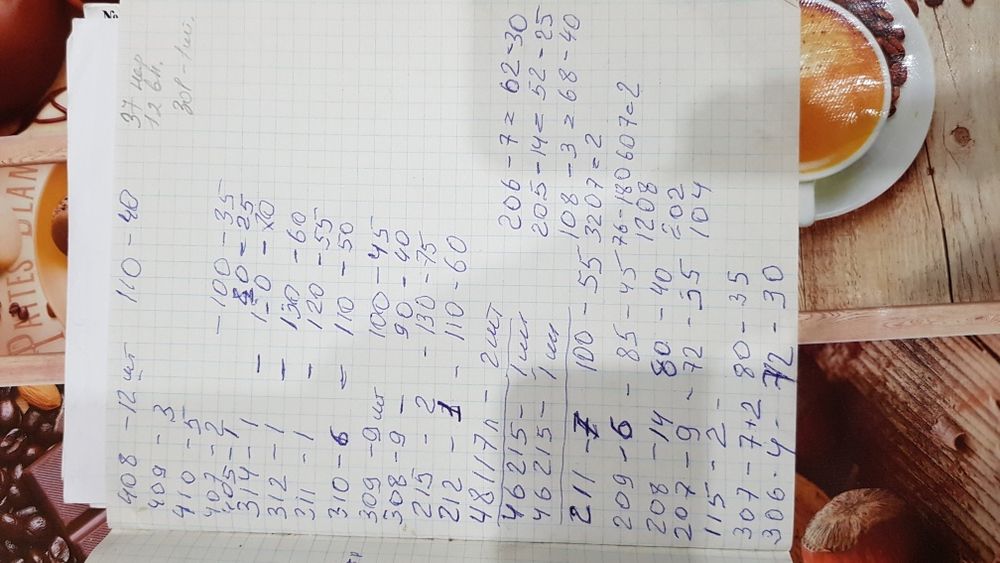 37 нар
12 вл.
30г - 1 шт.
408 - 12 шт 110 - 40
409 - 3
410 - 5
407 - 2 - 100 - 35
405 - 1
314 - 1 - 130 - 60
312 - 1 - 120 - 55
311 - 1
310 - 6 = 110 - 50
309 - 9 шт 100 - 45
308 - 9 - 90 - 40
215 - 2 - 130 - 75
212 - 1 - 110 - 60
48117л - 2 шт
46215 - 1 шт 206 - 7 = 62 - 30
46215 - 1 шт 205 - 14 = 52 - 25
211 - 7 100 - 55 108 - 3 = 68 - 40
3207 = 2
209 - 6 - 85 - 45 76 - 180 607 = 2
208 - 14 80 - 40 1208
207 - 9 - 72 - 35 202
115 - 2 - 104
307 - 7 + 2 80 - 35
306 - 4 - 72 - 30
PATES BLAN